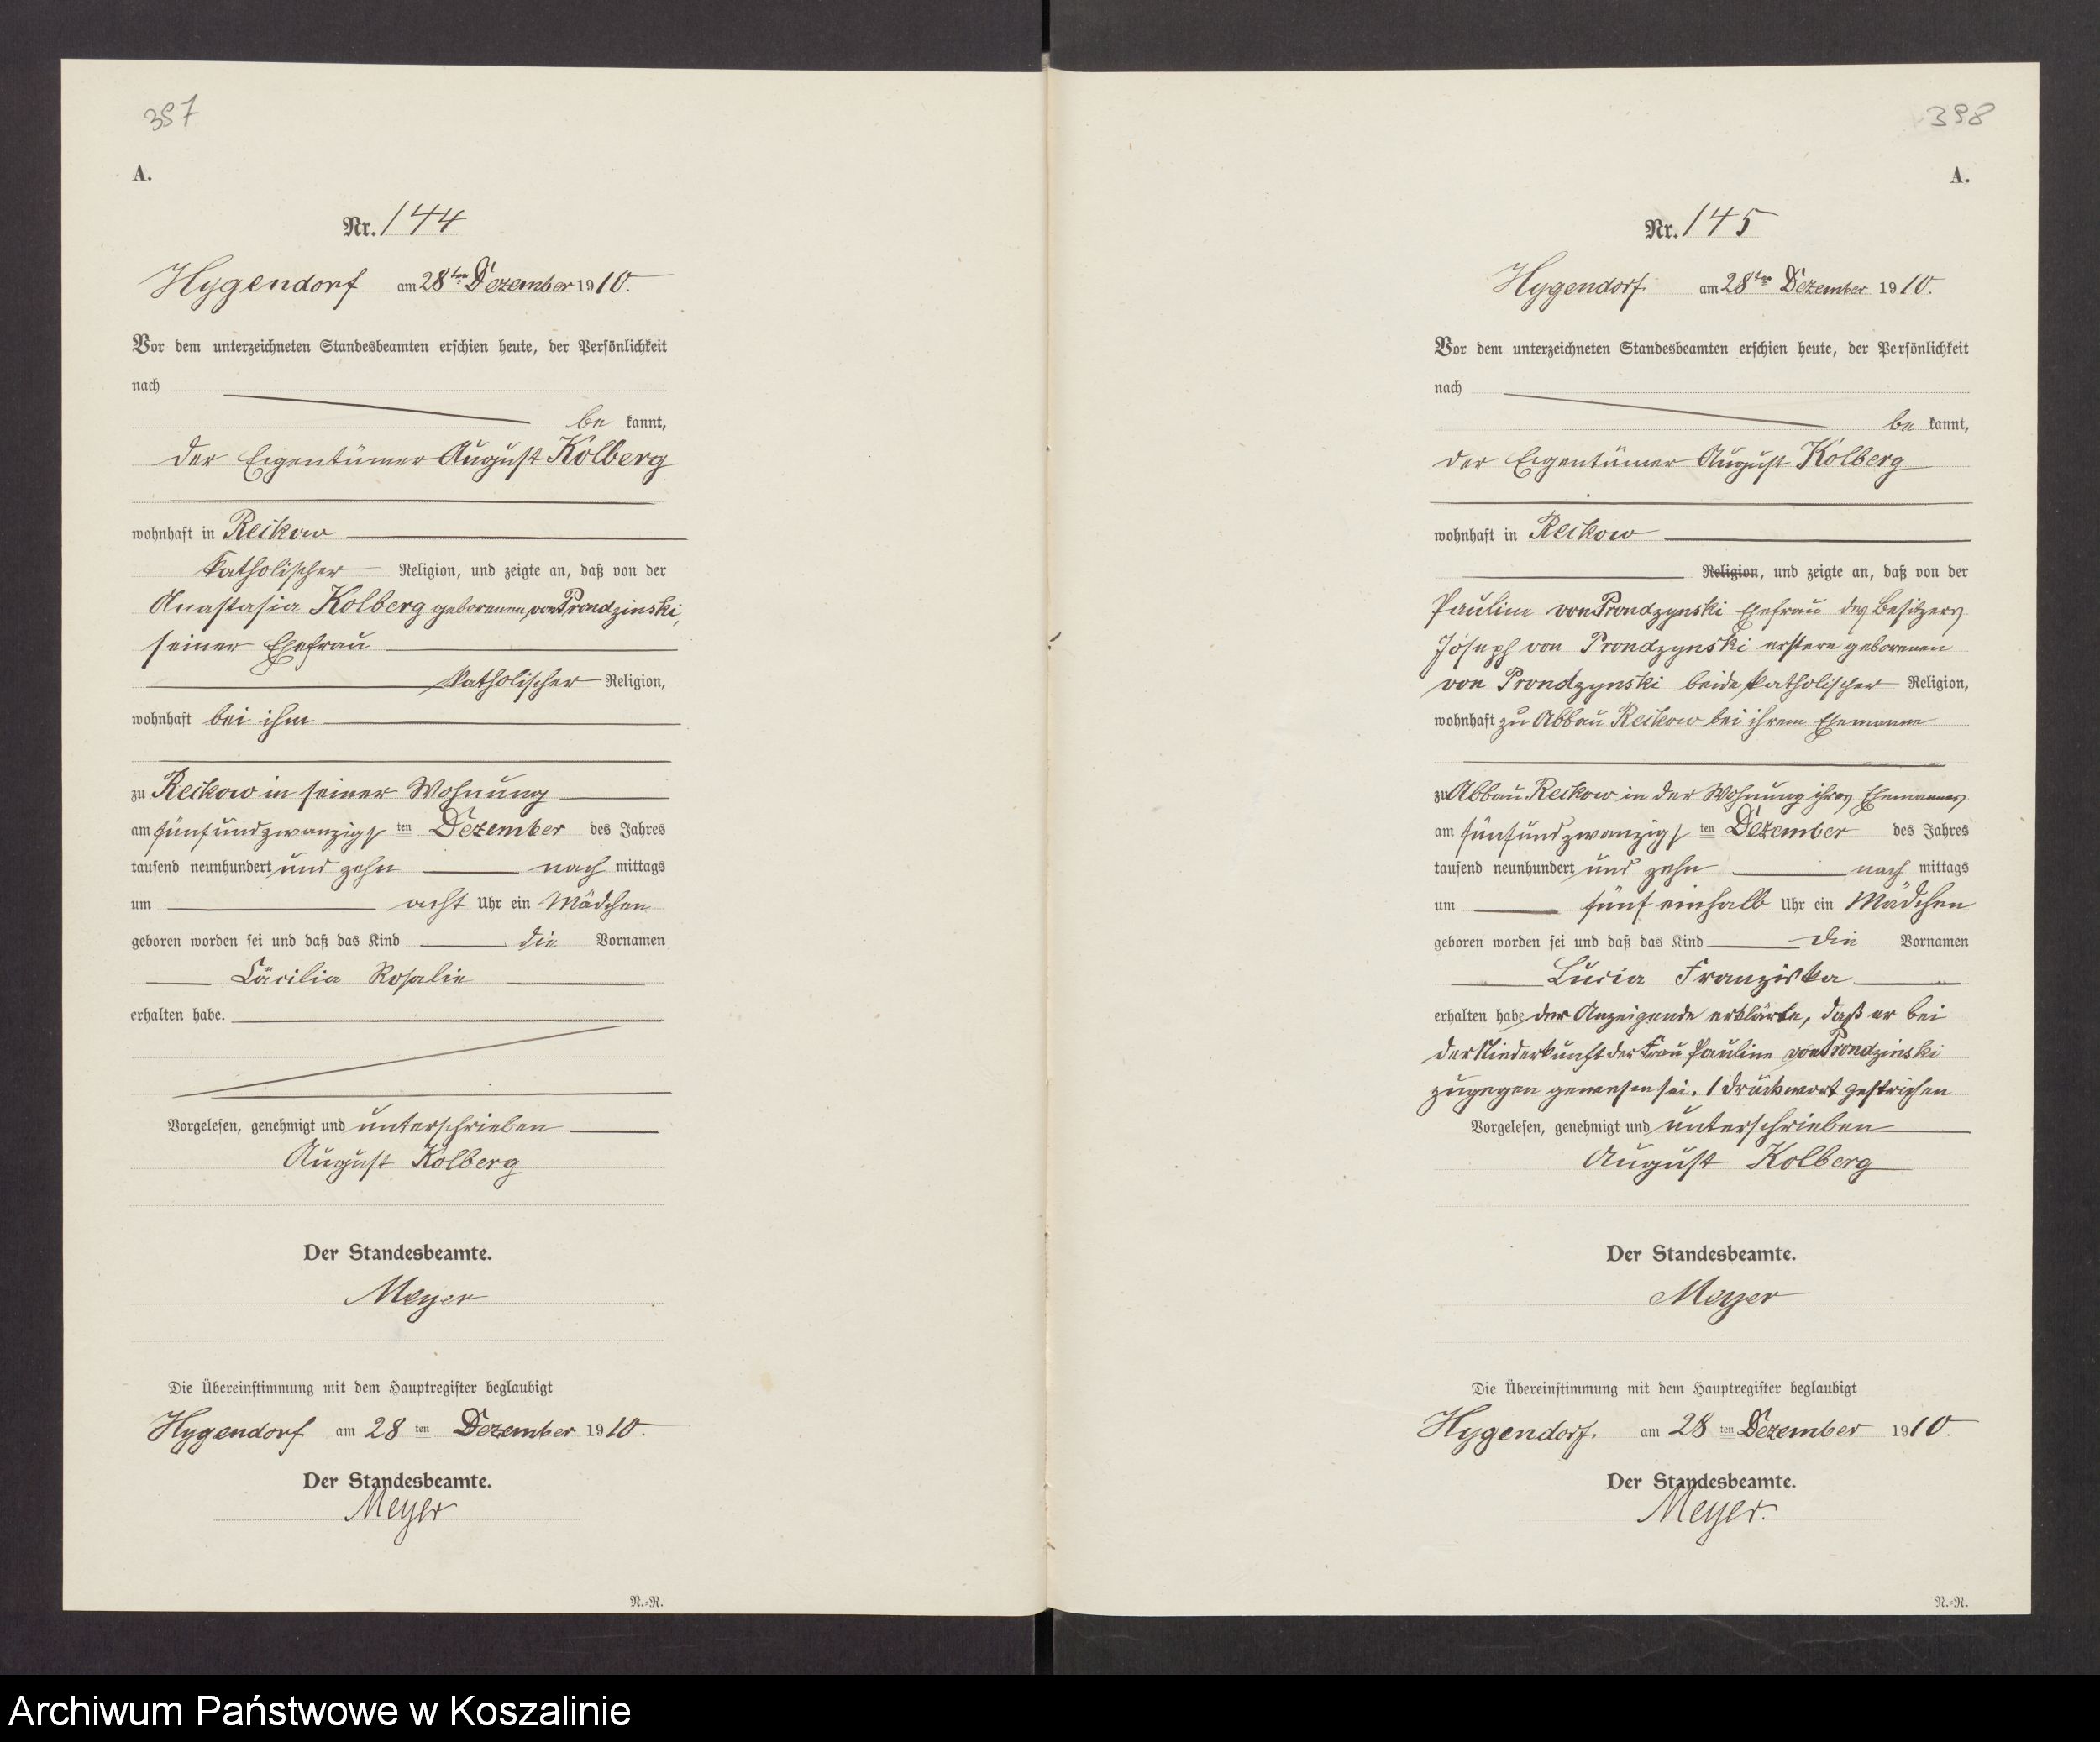 397
A.
Nr. 144
Hygendorf am 28ten Dezember 1910.
Vor dem unterzeichneten Standesbeamten erschien heute, der Persönlichkeit
nach
be kannt,
der Eigentümer August Kolberg
wohnhaft in Reckow
katholischer Religion, und zeigte an, daß von der
Anastasia Kolberg geborenen von Prondzinski,
seiner Ehefrau
katholischer Religion,
wohnhaft bei ihm
zu Reckow in seiner Wohnung
am fünfundzwanzigsten Dezember des Jahres
tausend neunhundert und zehn nach mittags
um acht Uhr ein Mädchen
geboren worden sei und daß das Kind die Vornamen
Cäcilia Rosalie
erhalten habe.
Vorgelesen, genehmigt und unterschrieben
August Kolberg
Der Standesbeamte.
Meyer
Die Übereinstimmung mit dem Hauptregister beglaubigt
Hygendorf am 28ten Dezember 1910.
Der Standesbeamte.
Meyer
N.-R.
398
A.
Nr. 145
Hygendorf. am 28ten Dezember 1910.
Vor dem unterzeichneten Standesbeamten erschien heute, der Persönlichkeit
nach
be kannt,
der Eigentümer August Kolberg
wohnhaft in Reckow
Religion, und zeigte an, daß von der
Pauline von Prondzynski Ehefrau des Besitzers
Joseph von Prondzynski erstere geborenen
von Prondzynski beide katholischer Religion,
wohnhaft zu Abbau Reckow bei ihrem Ehemanne
zu Abbau Reckow in der Wohnung ihres Ehemannes
am fünfundzwanzigsten Dezember des Jahres
tausend neunhundert und zehn nach mittags
um fünf einhalb Uhr ein Mädchen
geboren worden sei und daß das Kind die Vornamen
Lucia Franziska
erhalten habe der Anzeigende erklärte, daß er bei
der Niederkunft der Frau Pauline von Prondzinski
zugegen gewesen sei. 1 Druckwort gestrichen
Vorgelesen, genehmigt und unterschrieben
August Kolberg
Der Standesbeamte.
Meyer
Die Übereinstimmung mit dem Hauptregister beglaubigt
Hygendorf. am 28ten Dezember 1910.
Der Standesbeamte.
Meyer.
N.-R.
Archiwum Państwowe w Koszalinie